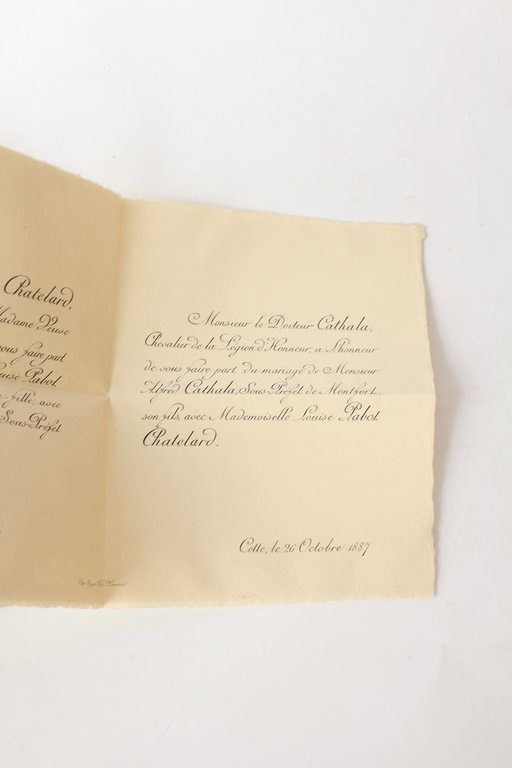 Chatelard,
Madame Veuve
vous faire part
Louise Pabot
fille, avec
Sous-Préfet
Monsieur le Docteur Cathala,
Chevalier de la Légion d'Honneur, a l'honneur
de vous faire part du mariage de Monsieur
Alfred Cathala, Sous-Préfet de Montfort,
son fils, avec Mademoiselle Louise Pabot
Chatelard.
Cette, le 26 Octobre 1887